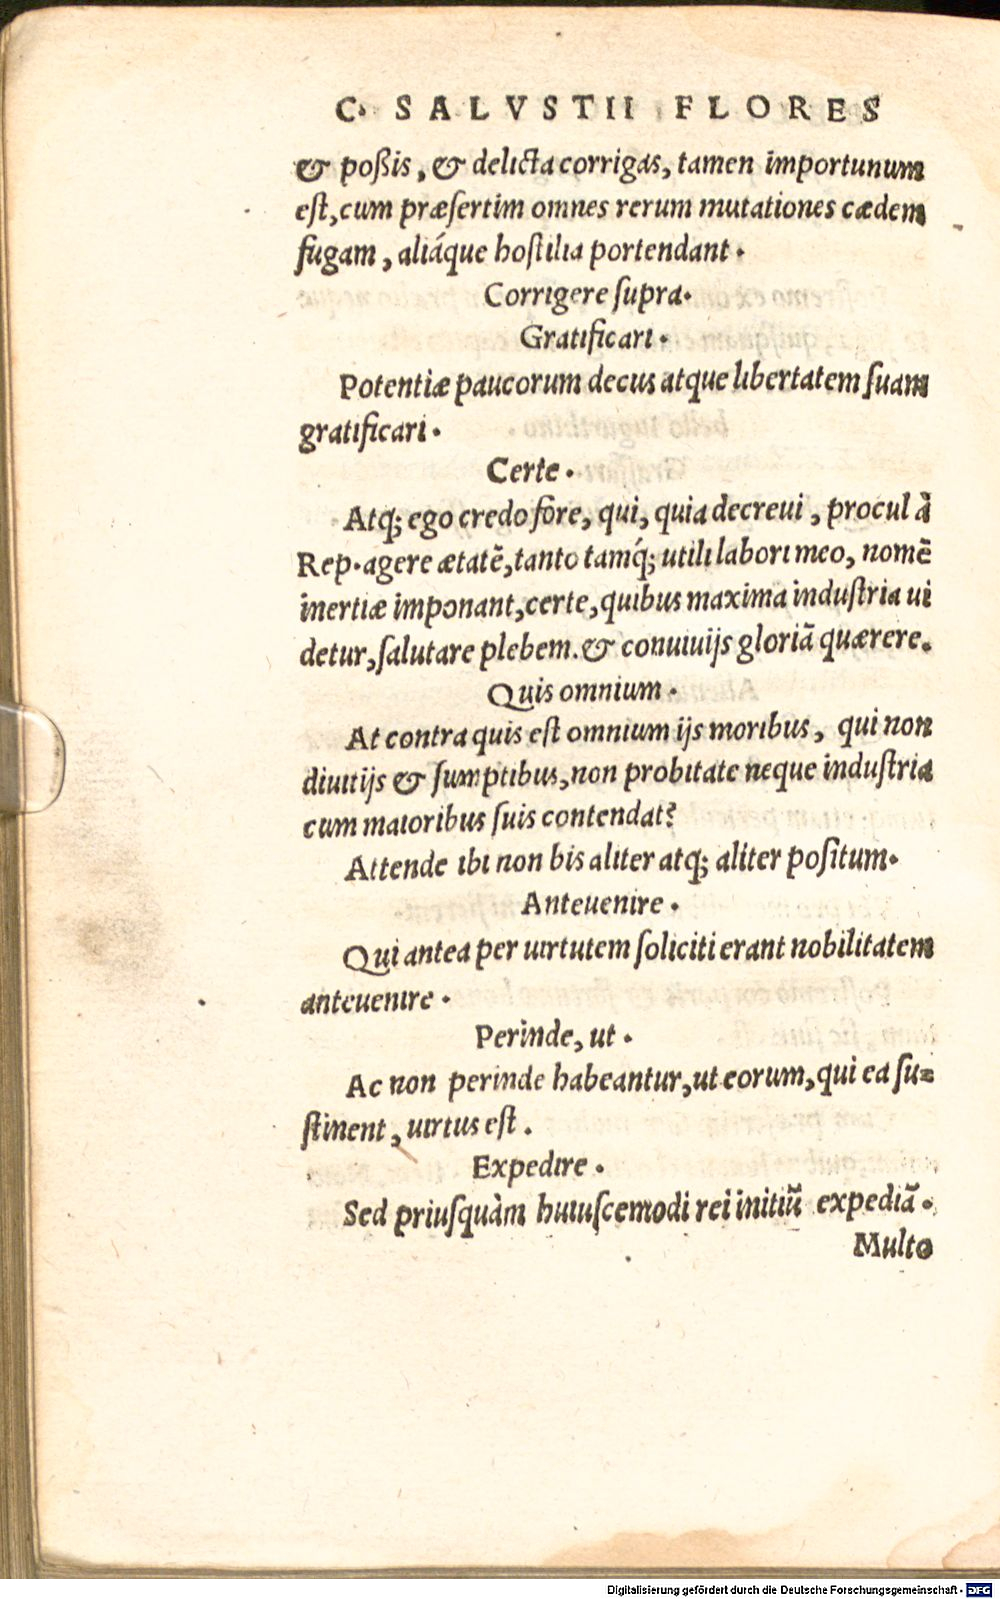 C. SALVSTII FLORES
& poßis, & delicta corrigas, tamen importunum
est, cum præsertim omnes rerum mutationes cædem
fugam, aliáque hostilia portendant.
Corrigere supra.
Gratificari.
Potentiæ paucorum decus atque libertatem suam
gratificari.
Certe.
Atq; ego credo fore, qui, quia decreui, procul à
Rep. agere ætatē, tanto tamq́; utili labori meo, nomē
inertiæ imponant, certe, quibus maxima industria ui
detur, salutare plebem. & conuiuijs gloriā quærere.
Quis omnium.
At contra quis est omnium ijs moribus, qui non
diuitijs & sumptibus, non probitate neque industria
cum maioribus suis contendat?
Attende ibi non bis aliter atq; aliter positum.
Anteuenire.
Qui antea per uirtutem soliciti erant nobilitatem
anteuenire.
Perinde, ut.
Ac non perinde habeantur, ut eorum, qui ea su=
stinent, uirtus est.
Expedire.
Sed priusquàm huiuscemodi rei initiū expediā.
Multo
Digitalisierung gefördert durch die Deutsche Forschungsgemeinschaft - DFG